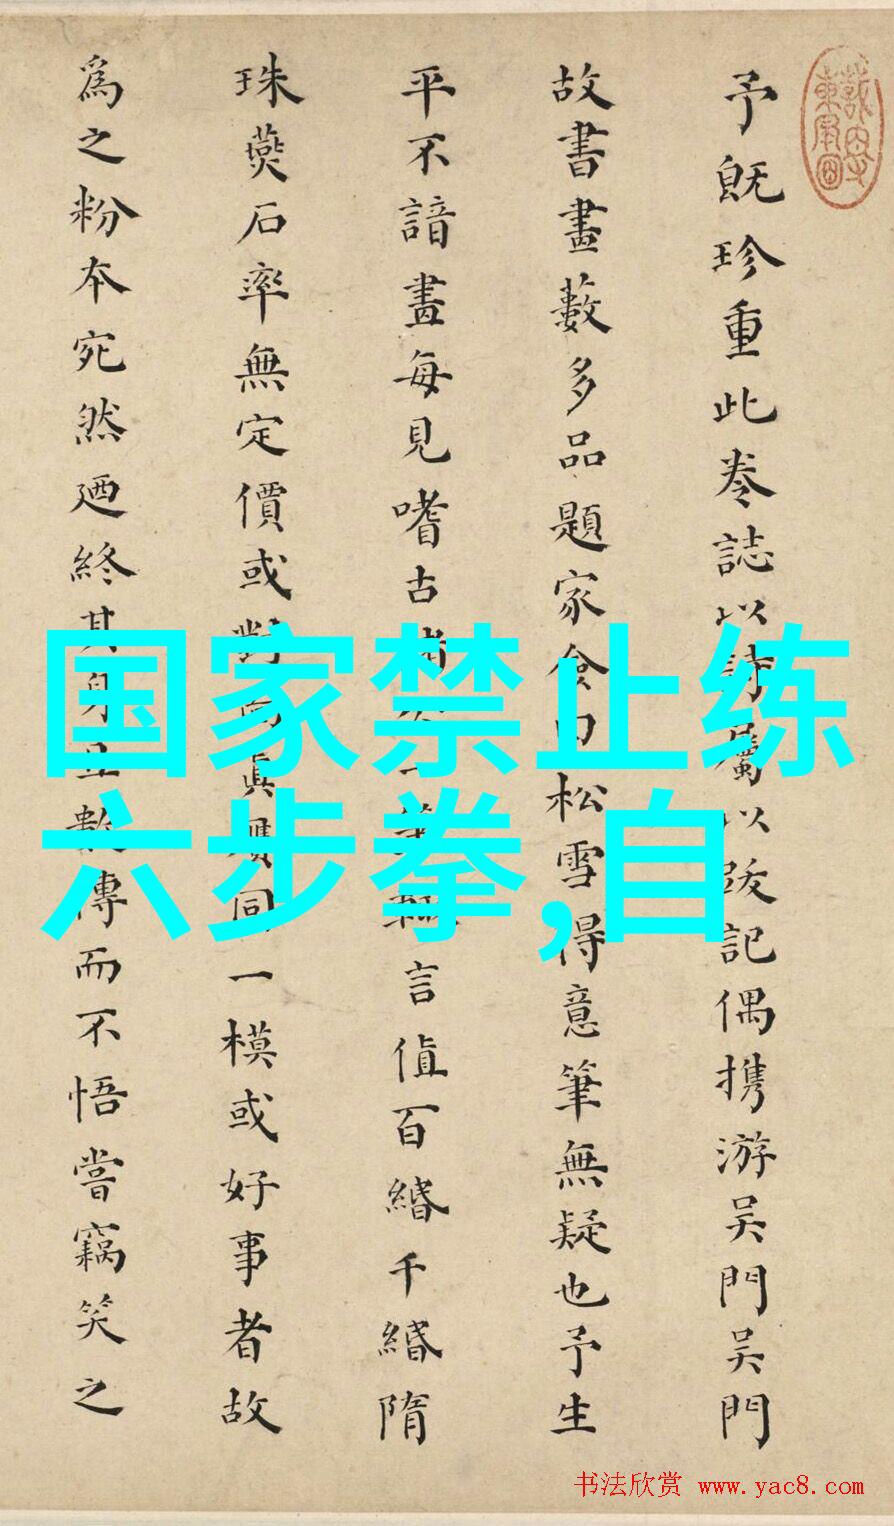 予既珍重此卷誌以詩屬以跋記偶携游吴門吴門
故書畫藪多品題家僉曰松雪得意筆無疑也予生
平不諳畫每見嗜古者
言值百緡千緡隋
珠燕石率無定價或對
真贋同一模或好事者故
為之粉本宛然廼終其身且數傳而不悟嘗竊笑之
国家禁止练
六步拳,自
书法欣赏 www.yac8.com